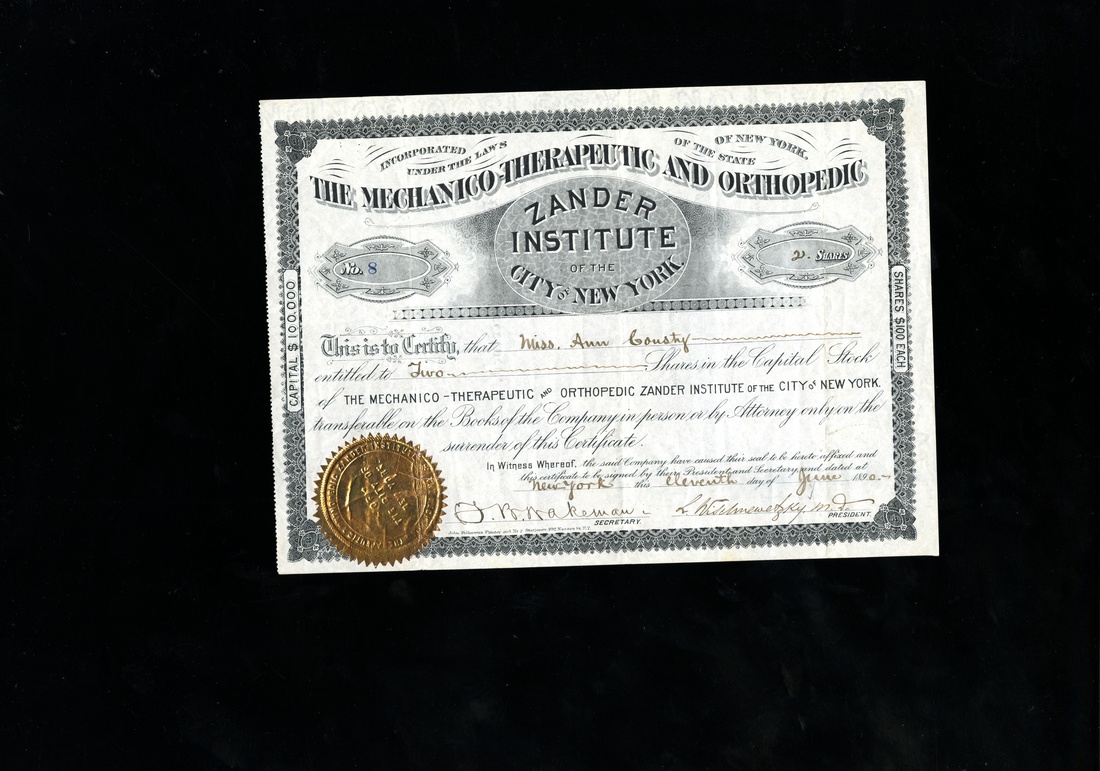 INCORPORATED UNDER THE LAWS OF THE STATE OF NEW YORK.
THE MECHANICO-THERAPEUTIC AND ORTHOPEDIC
ZANDER
INSTITUTE
OF THE
CITY OF NEW YORK.
No. 8
2. SHARES
CAPITAL $100.000
SHARES $100 EACH
This is to Certify, that Miss. Ann Cousty
entitled to Two Shares in the Capital Stock
of THE MECHANICO-THERAPEUTIC AND ORTHOPEDIC ZANDER INSTITUTE OF THE CITY OF NEW YORK.
transferable on the Books of the Company in person or by Attorney only on the
surrender of this Certificate.
In Witness Whereof, the said Company have caused their seal to be hereto affixed and
this certificate to be signed by their President and Secretary and dated at
New York this eleventh day of June 1890.
Wakeman
SECRETARY.
M.D.
PRESIDENT.